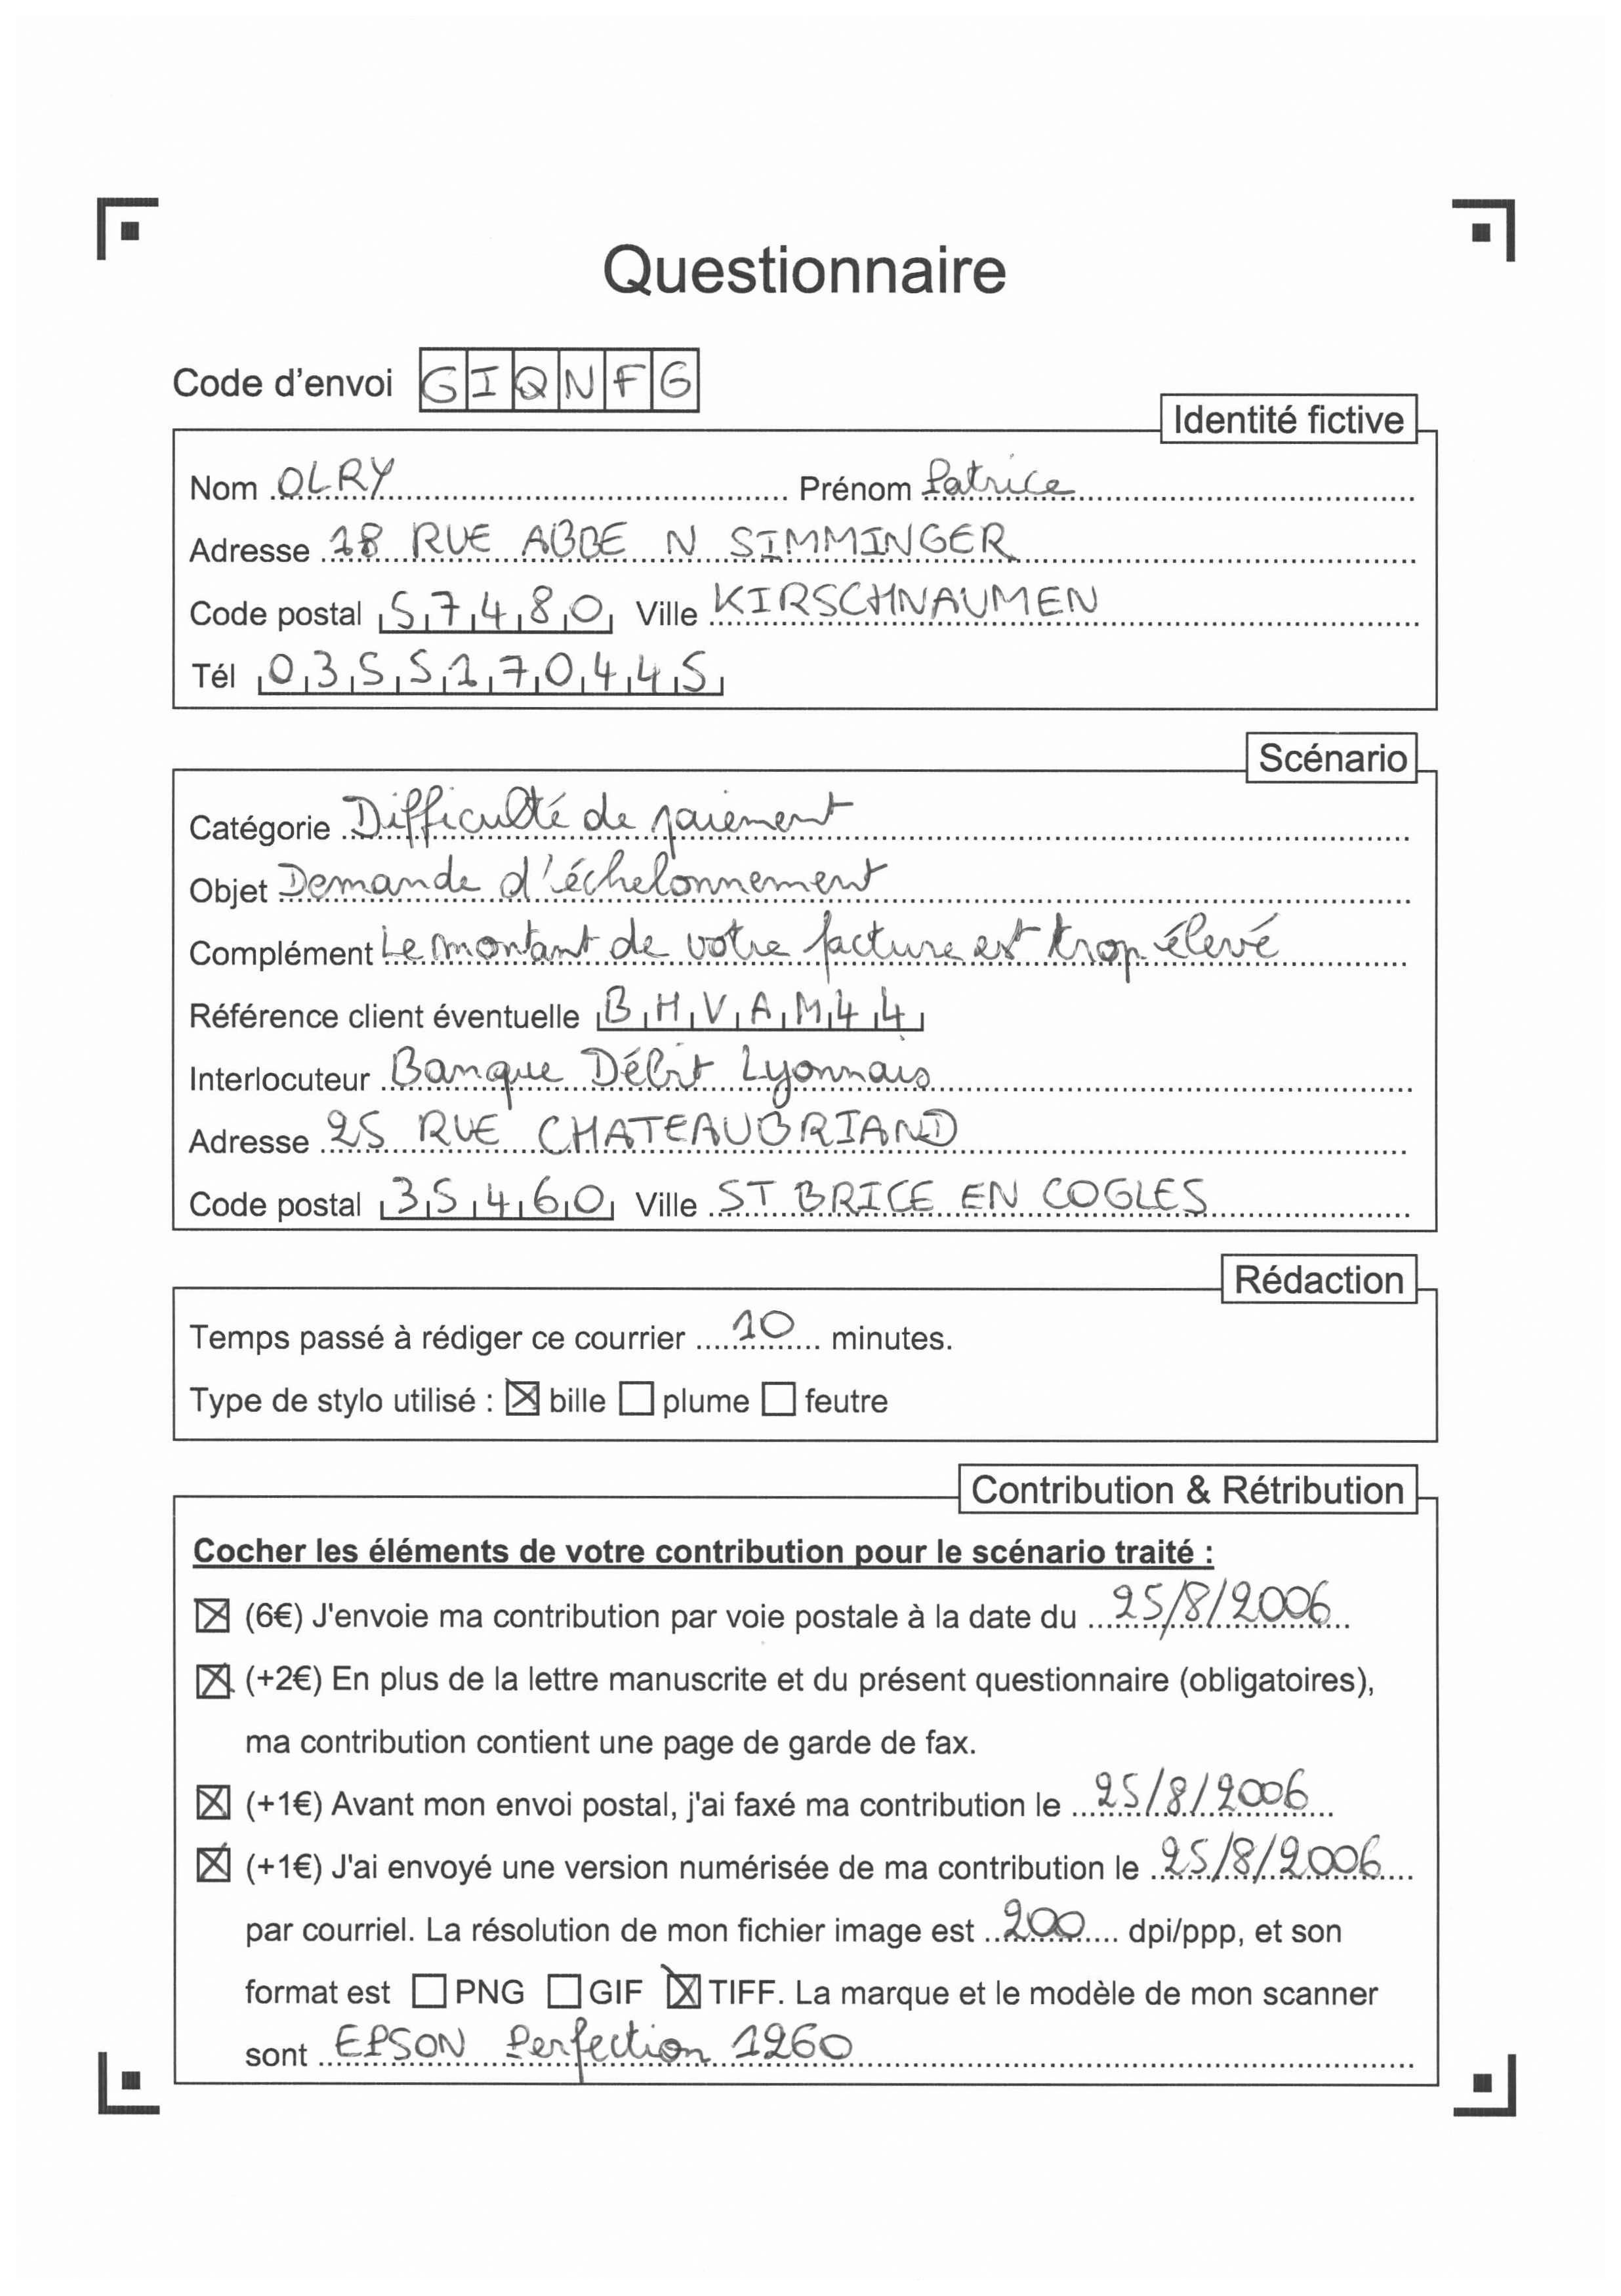 Questionnaire
Code d'envoi GIQNFG
Identité fictive
Nom OLRY Prénom Patrice
Adresse 18 RUE ABBE N SIMMINGER
Code postal 57480 Ville KIRSCHNAUMEN
Tél 0355170445
Scénario
Catégorie Difficulté de paiement
Objet Demande d'échelonnement
Complément Le montant de votre facture est trop élevé
Référence client éventuelle BHVAM44
Interlocuteur Banque Débit Lyonnais
Adresse 25 RUE CHATEAUBRIAND
Code postal 35460 Ville ST BRICE EN COGLES
Rédaction
Temps passé à rédiger ce courrier 10 minutes.
Type de stylo utilisé : ☒ bille ☐ plume ☐ feutre
Contribution & Rétribution
Cocher les éléments de votre contribution pour le scénario traité :
☒ (6€) J'envoie ma contribution par voie postale à la date du 25/8/2006
☒ (+2€) En plus de la lettre manuscrite et du présent questionnaire (obligatoires),
ma contribution contient une page de garde de fax.
☒ (+1€) Avant mon envoi postal, j'ai faxé ma contribution le 25/8/2006
☒ (+1€) J'ai envoyé une version numérisée de ma contribution le 25/8/2006
par courriel. La résolution de mon fichier image est 200 dpi/ppp, et son
format est ☐ PNG ☐ GIF ☒ TIFF. La marque et le modèle de mon scanner
sont EPSON Perfection 1260